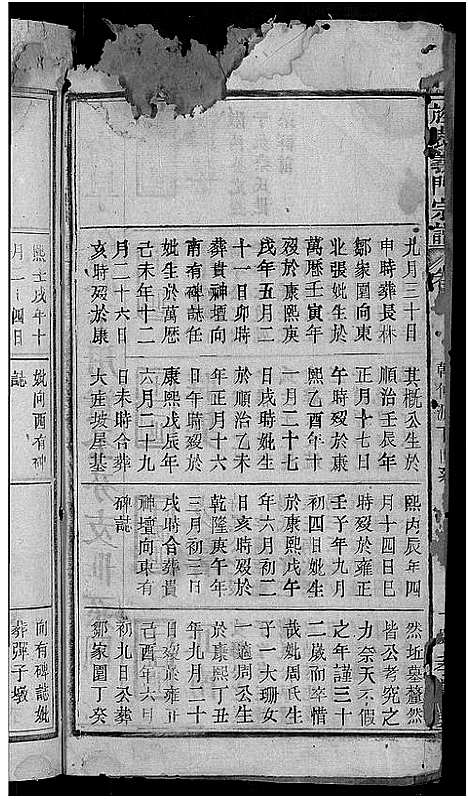 義門宗譜
九月三十日
申時葬長林
鄒家圍向東
北張妣生於
萬歷壬寅年
歿於康熙庚
戌年五月二
十一日卯時
葬貴神壇向
南有碑誌任
妣生於萬歷
己未年十二
月二十六日
亥時歿於康
熙壬戌年十
月二十四日
其概公生於
順治壬辰年
正月十七日
午時歿於康
熙乙酉年十
一月二十七
日戌時妣生
於順治乙未
年正月十六
日午時歿於
康熙戊辰年
六月二十九
日未時合葬
大産坡屋基
妣向西有碑
誌
熙丙辰年四
月十四日巳
時歿於雍正
壬子年九月
初四日妣生
於康熙戊午
年六月初二
日亥時歿於
乾隆庚午年
三月初三日
戌時合葬貴
神壇向東有
碑誌
然坵墓釐然
皆公考究之
力奈天不假
之年謹三十
二歲而卒惜
哉妣周氏生
子一大珊女
一適周公生
於康熙丁丑
年九月二十
日歿於雍正
己酉年六月
初九日公葬
鄒家圍丁癸
向有碑誌妣
葬彈子墩